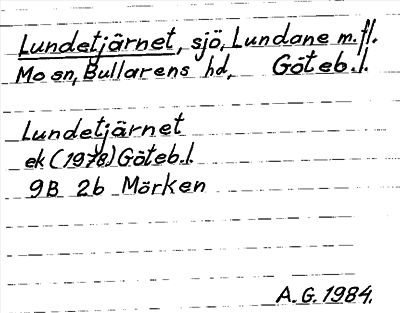 Lundetjärnet, sjö, Lundane m.fl.
Mo sn, Bullarens hd, Göteb.l.
Lundetjärnet
ek (1978) Göteb.l.
9B 2b Mörken
A.G. 1984.